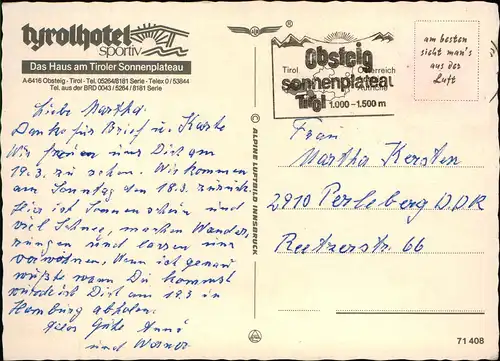 tyrolhotel
sportiv
Das Haus am Tiroler Sonnenplateau
A-6416 Obsteig · Tirol · Tel. 05264/8181 Serie - Telex 0 / 53844
Tel. aus der BRD 0043 / 5264 / 8181 Serie
Liebe Martha.
Danke für Brief u. Karte
Wir freuen uns Dich am
19.3. zu sehen. Wir kommen
am Sonntag den 18.3. zurück.
Hier ist Sonnenschein und
viel Schnee, machen Wander,
rungen und lassen uns
verwöhnen. Wenn ich genau
wüßte wann Du kommst
würde ich Dich am 19.3 in
Hamburg abholen.
Alles Gute Anni
und Werner
© ALPINE LUFTBILD INNSBRUCK
®
Obsteig
Tirol Österreich
Autriche
sonnenplateau
Tirol 1.000 - 1.500 m
am besten
sieht man's
aus der
Luft
Frau
Martha Kersten
2910 Perleberg DDR
Reetzerstr. 66
71 408